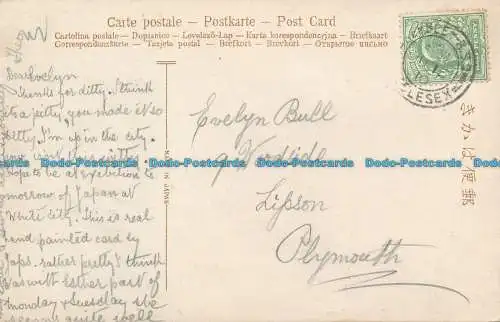 Carte postale - Postkarte - Post Card
Cartolina postale - Dopisnice - Levelező-Lap - Karta korespondencyjna - Briefkaart
Correspondenzkarte - Tarjeta postal - Brefkort - Brevkort - Открытое письмо
Dear Evelyn
Thanks for ditty. I think
its a pretty, you made it so
ditty. I'm up in the city.
hope to be at exibition to
morrow of Japan at
White City. This is real
hand painted card by
Japs. rather pretty I think
was with Esther part of
monday & Tuesday she
seems quite well
Evelyn Bull
Lipson
Plymouth
きかは便郵
LESEX
Do-Postcards